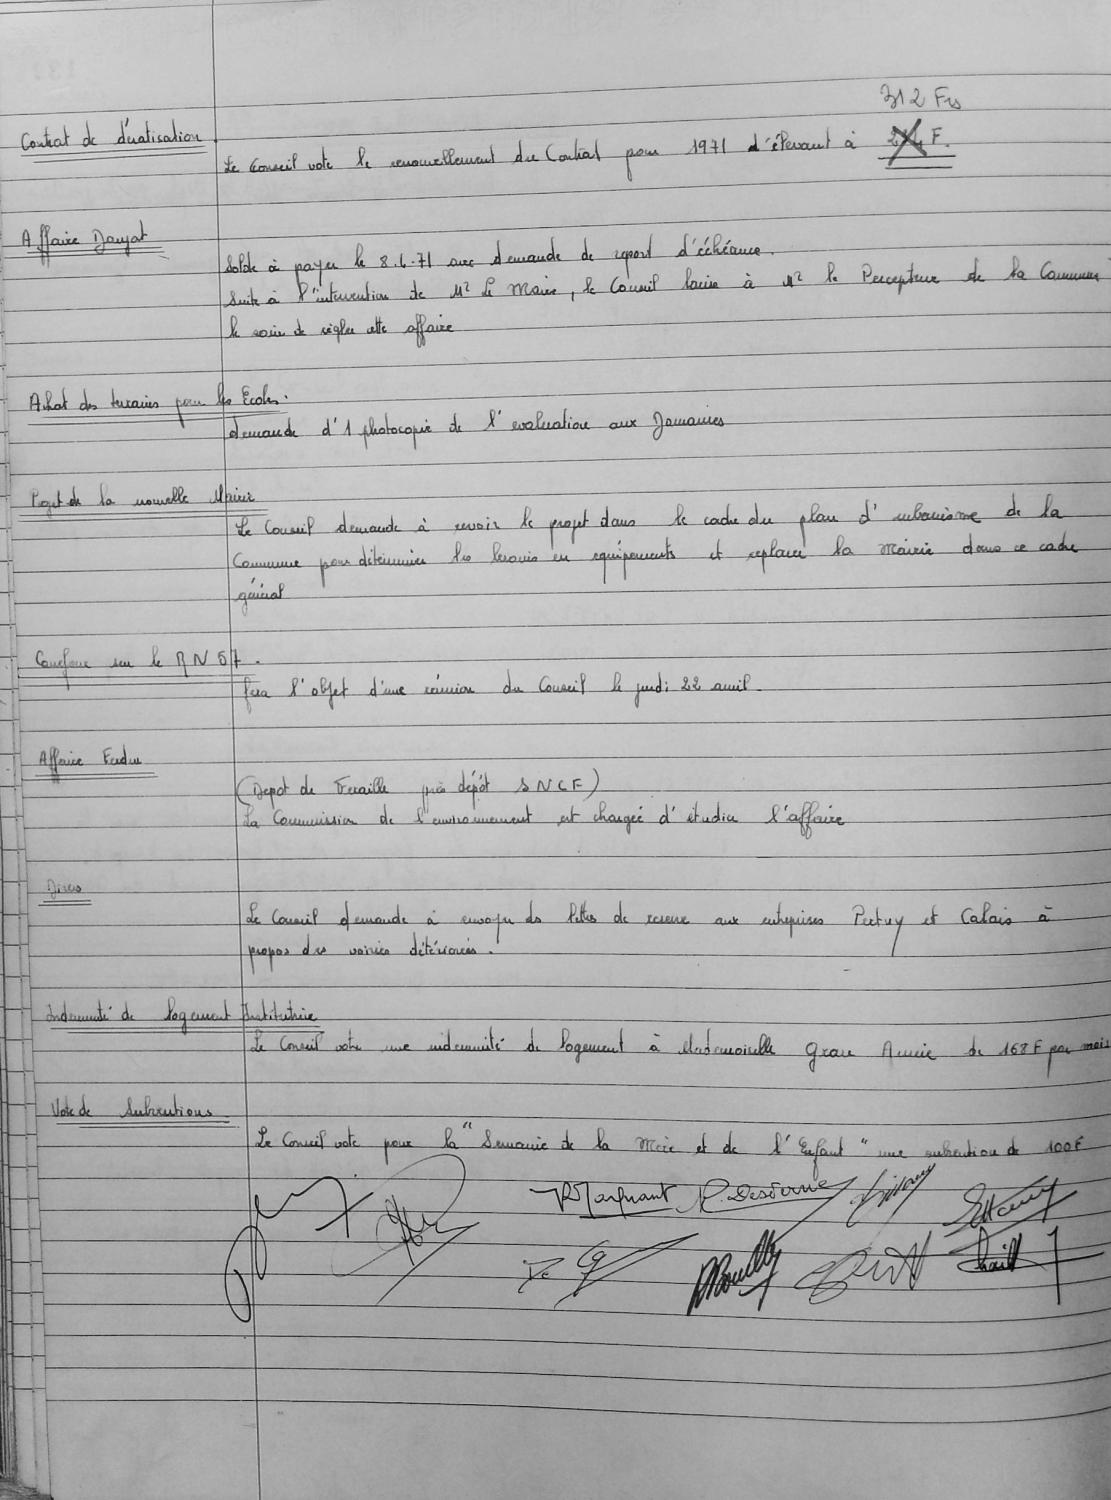 312 Frs
Contrat de dératisation
Le Conseil vote le renouvellement du Contrat pour 1971 s'élevant à F.
Affaire
Solde à payer le 8.6.71 avec demande de report d'échéance.
Suite à l'intervention de Mr Le Maire, le Conseil laisse à Mr le Percepteur de la Commune
le soin de régler cette affaire
Achat des terrains pour les Ecoles.
demande d'1 photocopie de l'evaluation aux Domaines
Projet de la nouvelle Mairie
Le Conseil demande à revoir le projet dans le cadre du plan d'urbanisme de la
Commune pour déterminer les besoins en equipements et replacer la Mairie dans ce cadre
général
Carrefour sur la RN 57.
fera l'objet d'une réunion du Conseil le jeudi 22 avril.
Affaire
(Depot de Ferraille près dépôt SNCF)
La Commission de l'environnement est chargée d'étudier l'affaire
Divers
Le Conseil demande à envoyer des lettres de reserve aux entreprises Pertuy et Calais à
propos des voiries détériorées.
Indemnité de logement Institutrice
Le Conseil vote une indemnité de logement à Mademoiselle Annie de 168 F par mois
Vote de Subventions
Le Conseil vote pour la "Semaine de la Mère et de l'Enfant" une subvention de 100F